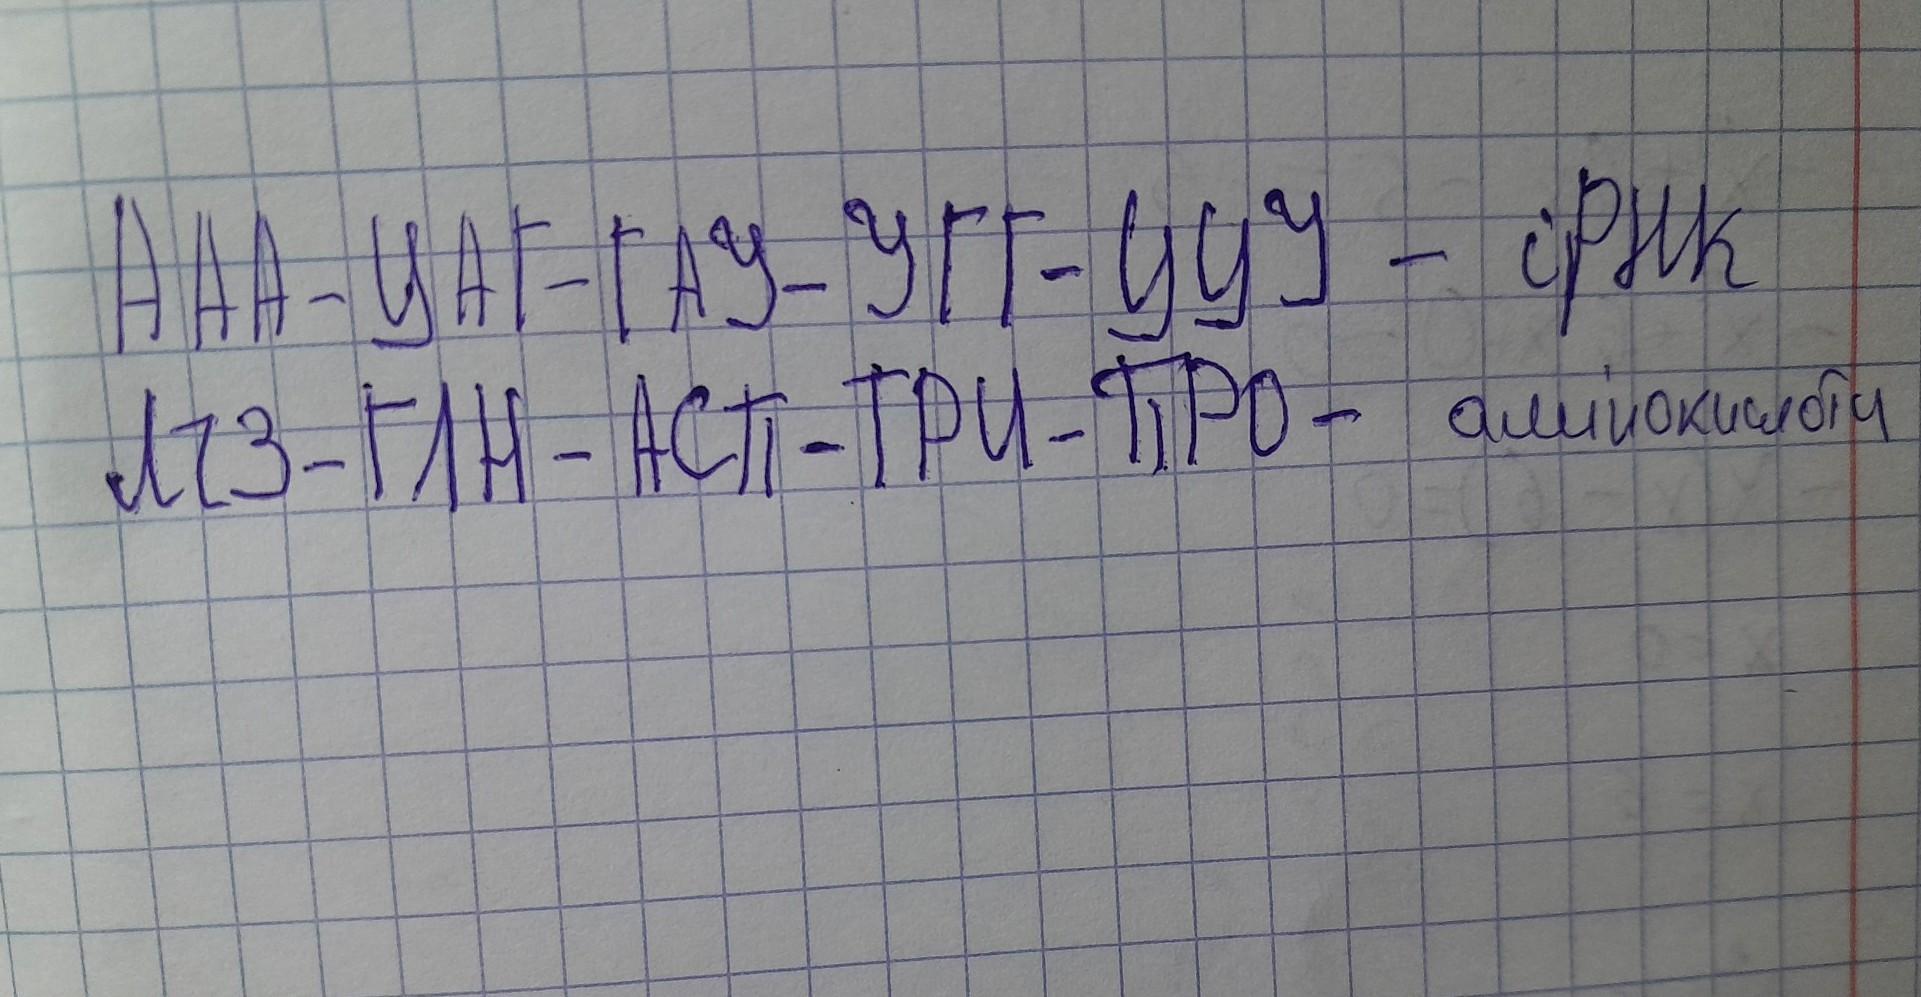 ААА-ЦАГ-ГАУ-УГГ-ЦЦУ - іРНК
ЛІЗ-ГЛН-АСП-ТРИ-ПРО- амінокислоти